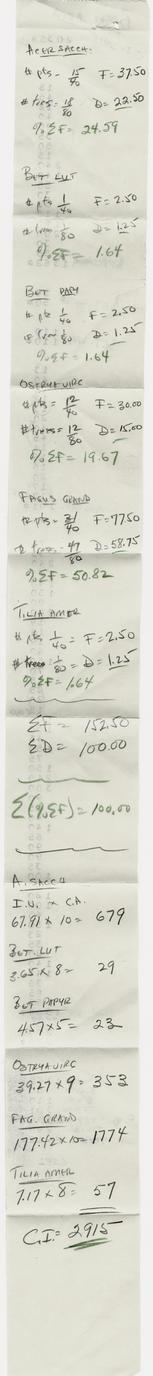 ACER SACCH.
# pts - 15/40 F = 37.50
# trees = 18/80 D = 22.50
% ΣF = 24.59
BET LUT
# pts 1/40 F = 2.50
# trees 1/80 D = 1.25
% ΣF = 1.64
BET PAPY
# pts 1/40 F = 2.50
# trees 1/80 D = 1.25
% ΣF = 1.64
OSTRYA VIRC
# pts = 12/40 F = 30.00
# trees = 12/80 D = 15.00
% ΣF = 19.67
FAGUS GRAND
# pts = 31/40 F = 77.50
# trees = 47/80 D = 58.75
% ΣF = 50.82
TILIA AMER
# pts 1/40 = F = 2.50
# trees 1/80 = D = 1.25
% ΣF = 1.64
ΣF = 152.50
ΣD = 100.00
Σ(%ΣF) = 100.00
A. SACCH
I.V. × C.A.
67.91 × 10 = 679
BET. LUT
3.65 × 8 = 29
BET PAPYR
4.57 × 5 = 23
OSTRYA VIRC
39.27 × 9 = 353
FAG. GRAND
177.42 × 10 = 1774
TILIA AMER
7.17 × 8 = 57
C.I. = 2915